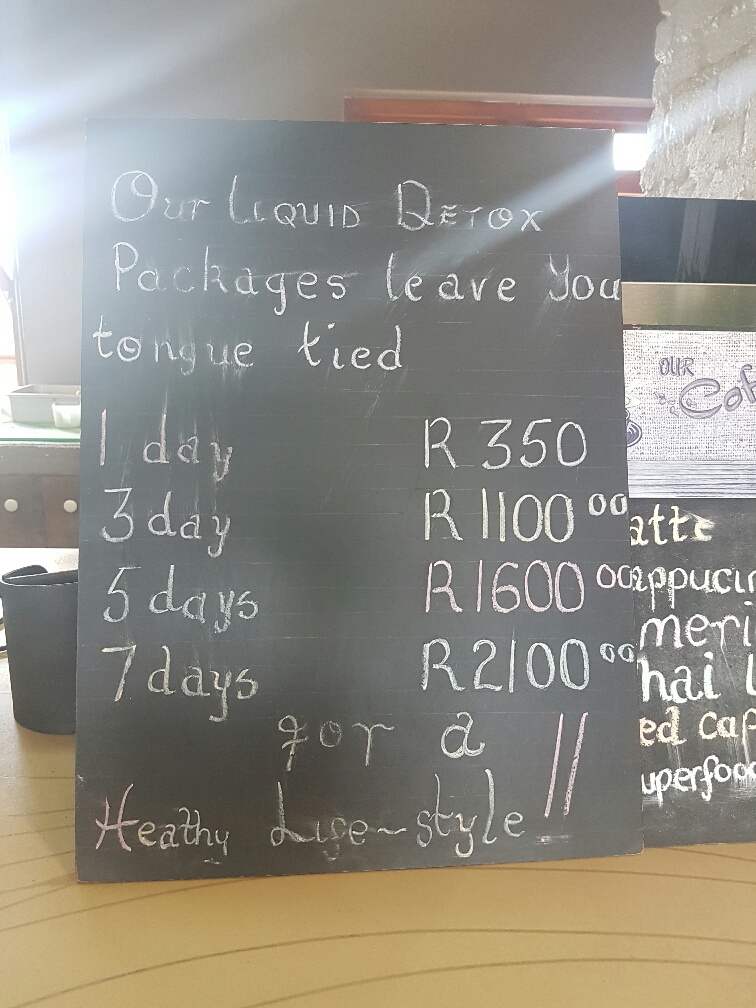 Our LIQUID DETOX
Packages leave You
tongue tied
1 day R 350
3 day R 1100 00
5 days R 1600 00
7 days R 2100 00
for a
Heathy Life-style !!
OUR
atte